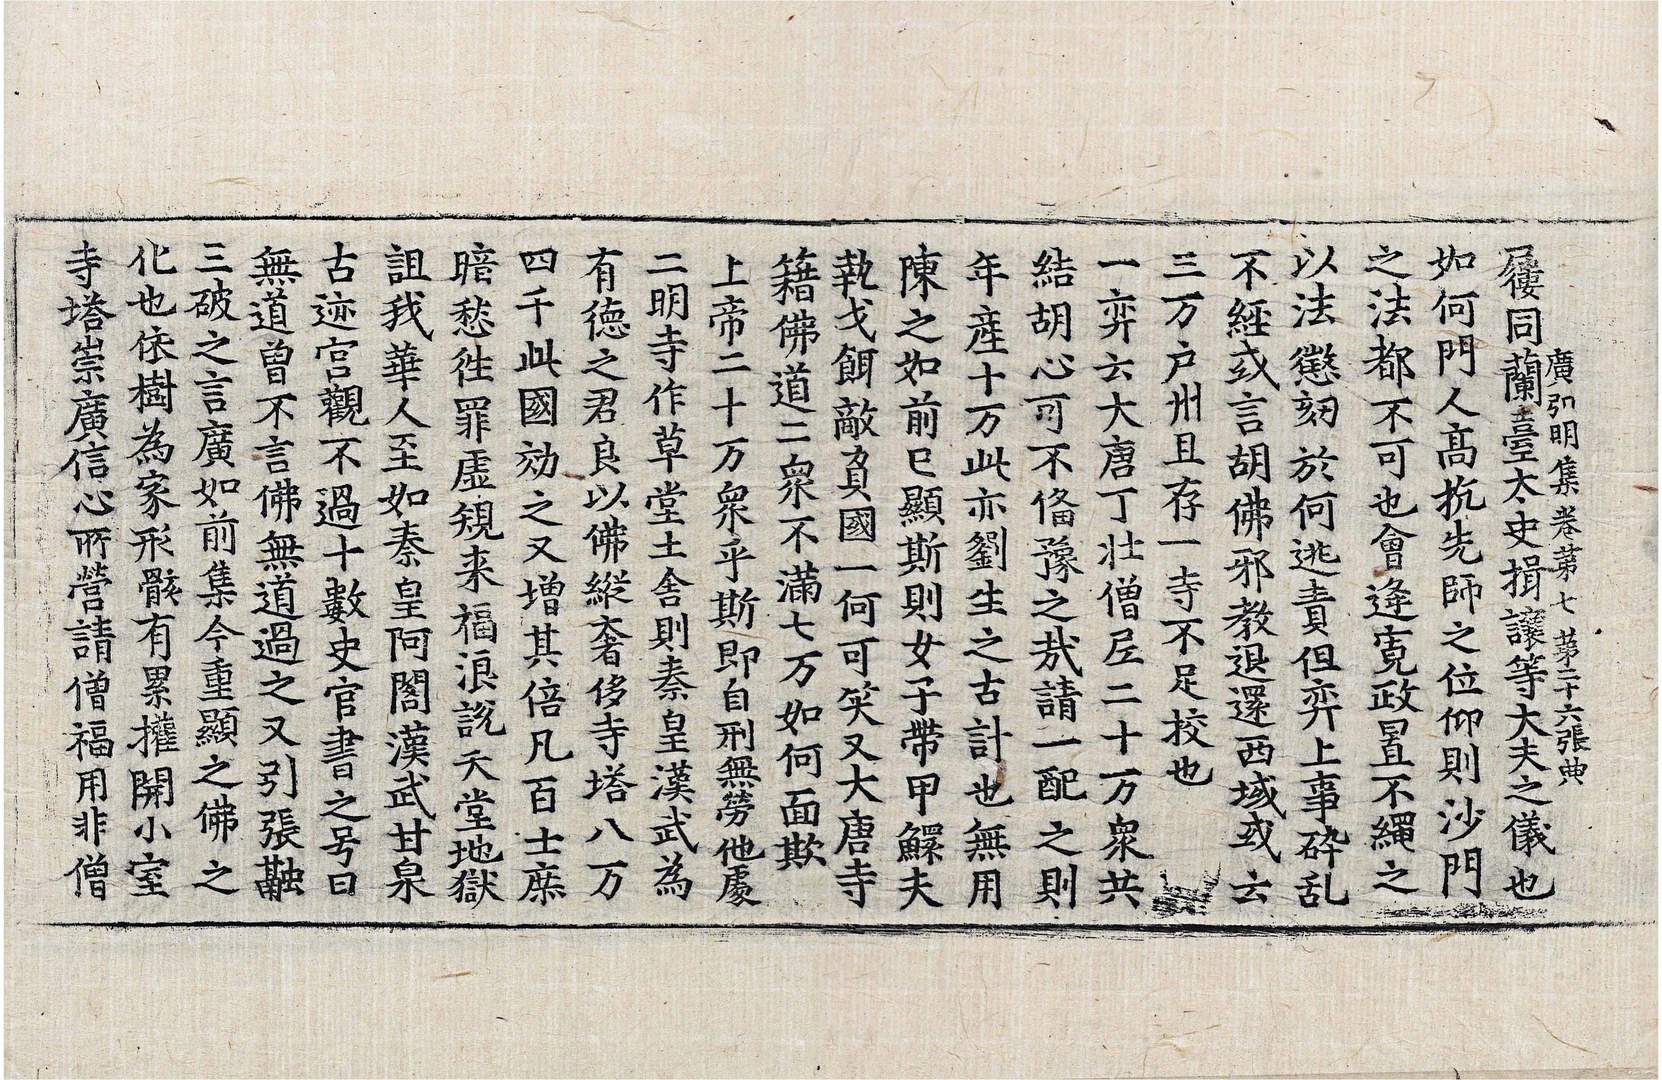 廣弘明集卷第七 第二十六張 典
屨同蘭臺太史揖讓等大夫之儀也
如何門人高抗先師之位仰則沙門
之法都不可也會逢寬政置不繩之
以法懲刻於何逃責但弈上事碎乱
不經或言胡佛邪教退還西域或云
三万户州且存一寺不足挍也
一弈云大唐丁壯僧尼二十万衆共
結胡心可不俻豫之哉請一配之則
年產十万此亦劉生之古計也無用
陳之如前已顯斯則女子帶甲鰥夫
執戈餌敵負國一何可笑又大唐寺
籍佛道二衆不滿七万如何面欺
上帝二十万衆乎斯即自刑無勞他處
二明寺作草堂土舍則秦皇漢武為
有德之君良以佛縱奢侈寺塔八万
四千此國効之又增其倍凡百士庶
暗愁徃罪虛䂓来福浪說天堂地獄
詛我華人至如秦皇阿閣漢武甘泉
古迹宫觀不過十數史官書之号曰
無道曾不言佛無道過之又引張融
三破之言廣如前集今重顯之佛之
化也依樹為家形骸有累攉開小室
寺塔崇廣信心所營請僧福用非僧